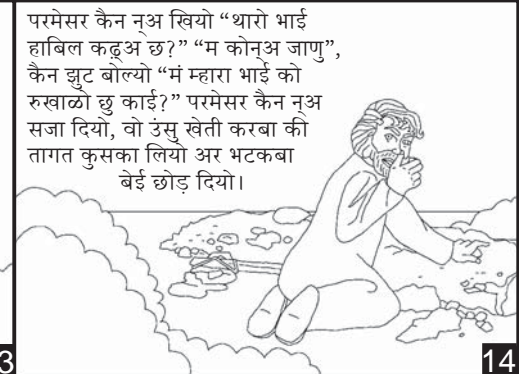 परमेसर कैन न्अ खियो “थारो भाई
हाबिल कढ्अ छ?” “म कोन्अ जाणु”,
कैन झुट बोल्यो “मं म्हारा भाई को
रुखाळो छु काई?” परमेसर कैन न्अ
सजा दियो, वो उंसु खेती करबा की
तागत कुसका लियो अर भटकबा
बेई छोड़ दियो।
3
14